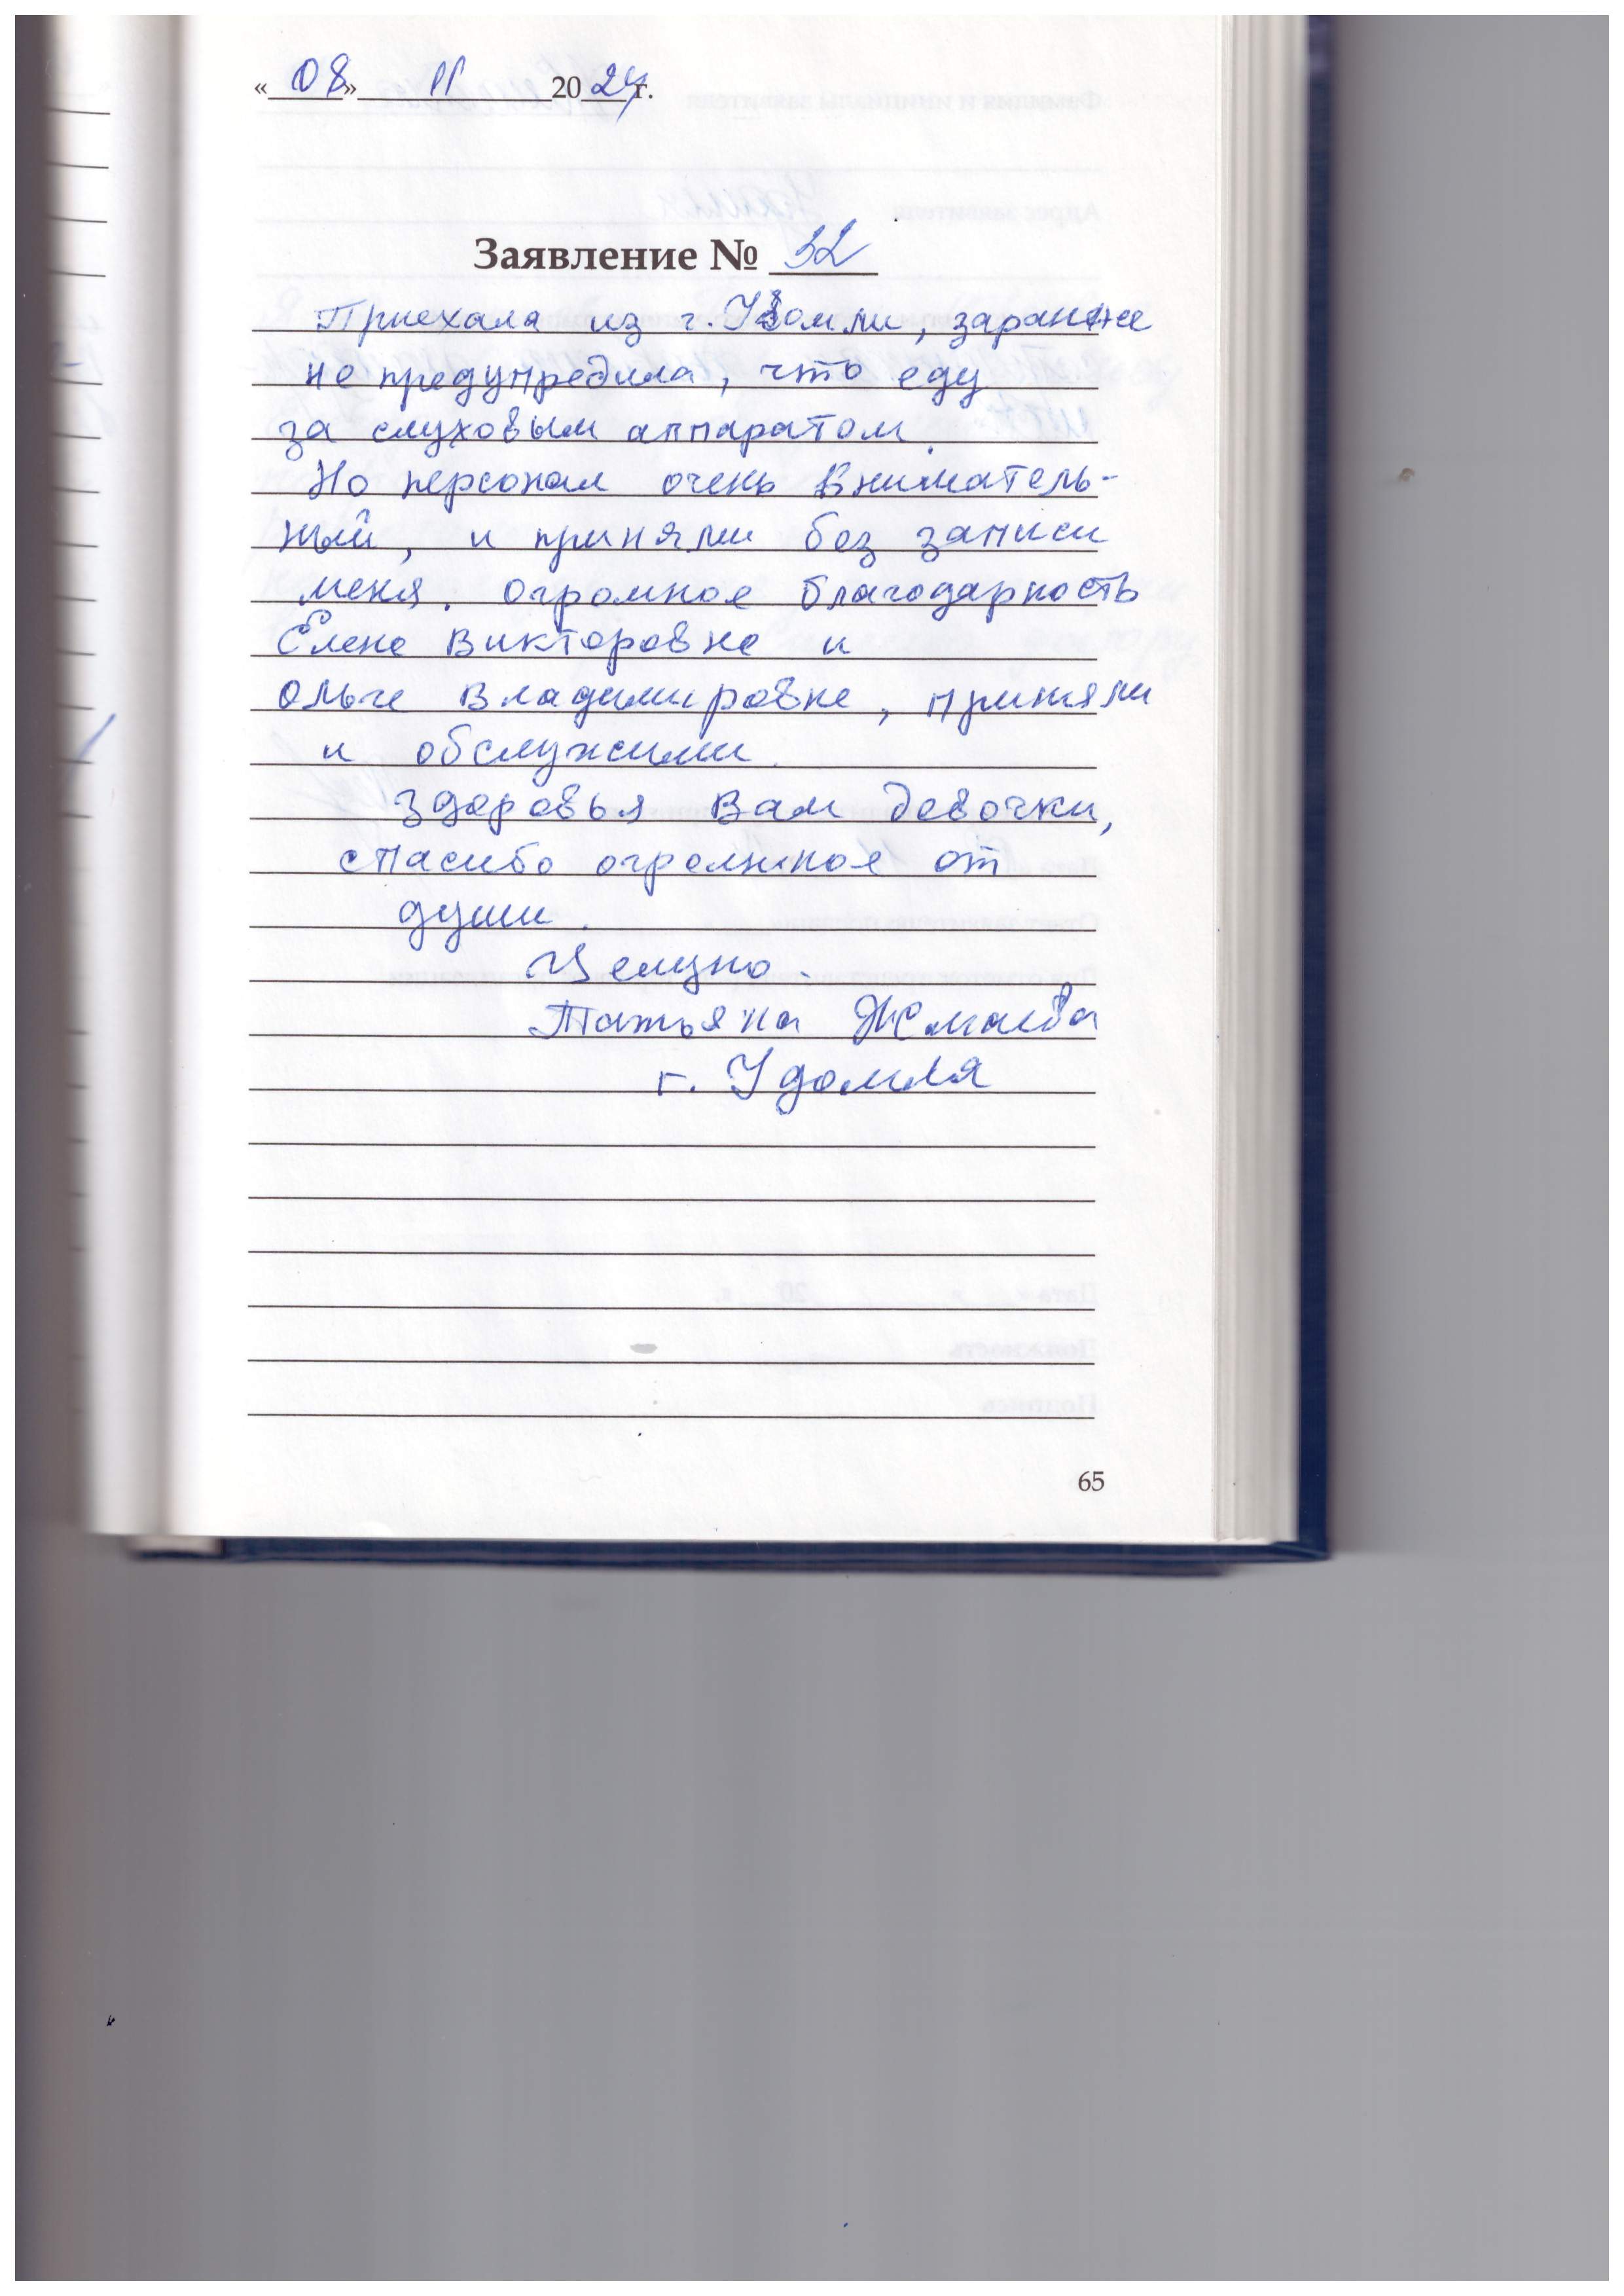 «08» 11 2024 г.
Заявление № 32
Приехала из г. Удомли, заранее
не предупредила, что еду
за слуховым аппаратом.
Но персонал очень вниматель-
ный, и приняли без записи
меня. Огромное благодарность
Елене Викторовне и
Ольге Владимировне, приняли
и обслужили.
Здоровья Вам девочки,
спасибо огромное от
души.
Целую.
Татьяна
г. Удомля
65